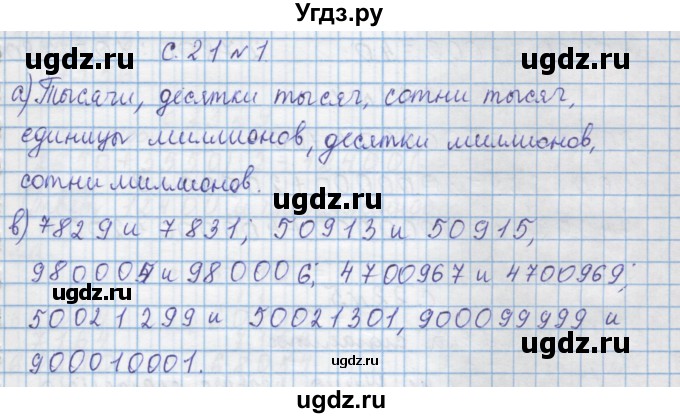 Угдз.ру
С. 21 №1
а) Тысячи, десятки тысяч, сотни тысяч,
единицы миллионов, десятки миллионов,
сотни миллионов.
в) 7829 и 7831; 50913 и 50915,
980004 и 980006; 4700967 и 4700969;
50021299 и 50021301, 900099999 и
900010001.
ugdz.ru
ugdz.ru
ugdz.ru
ugdz.ru
ugdz.ru
ugdz.ru
ugdz.ru
ugdz.ru